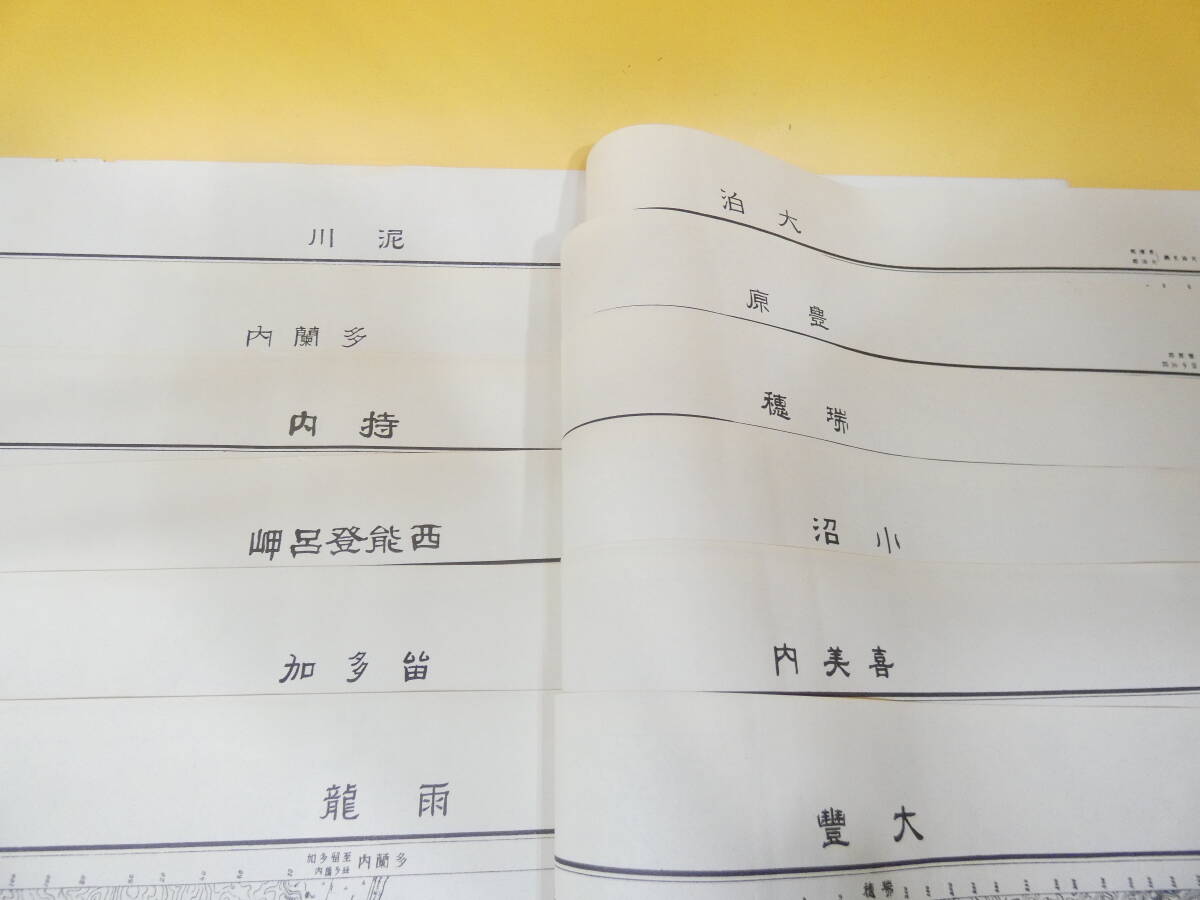 泥川
多蘭内
持内
西能登呂岬
留多加
雨龍
多蘭内
至留多加
大泊
豊原
瑞穂
小沼
喜美内
大豐